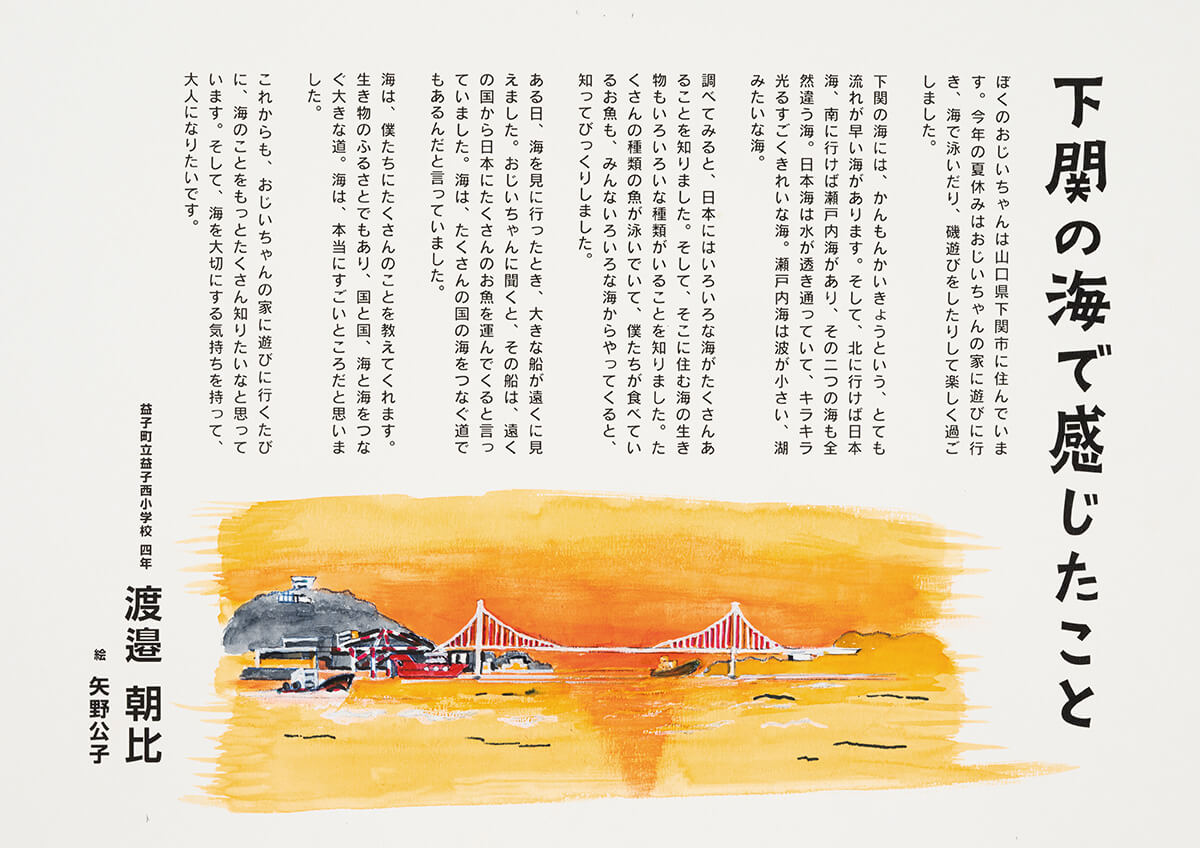 下関の海で感じたこと
ぼくのおじいちゃんは山口県下関市に住んでいま
す。今年の夏休みはおじいちゃんの家に遊びに行
き、海で泳いだり、磯遊びをしたりして楽しく過ご
しました。
下関の海には、かんもんかいきょうという、とても
流れが早い海があります。そして、北に行けば日本
海、南に行けば瀬戸内海があり、その二つの海も全
然違う海。日本海は水が透き通っていて、キラキラ
光るすごくきれいな海。瀬戸内海は波が小さい、湖
みたいな海。
調べてみると、日本にはいろいろな海がたくさんあ
ることを知りました。そして、そこに住む海の生き
物もいろいろいな種類がいることを知りました。た
くさんの種類の魚が泳いでいて、僕たちが食べてい
るお魚も、みんないろいろな海からやってくると、
知ってびっくりしました。
ある日、海を見に行ったとき、大きな船が遠くに見
えました。おじいちゃんに聞くと、その船は、遠く
の国から日本にたくさんのお魚を運んでくると言っ
ていました。海は、たくさんの国の海をつなぐ道で
もあるんだと言っていました。
海は、僕たちにたくさんのことを教えてくれます。
生き物のふるさとでもあり、国と国、海と海をつな
ぐ大きな道。海は、本当にすごいところだと思いま
した。
これからも、おじいちゃんの家に遊びに行くたび
に、海のことをもっとたくさん知りたいなと思って
います。そして、海を大切にする気持ちを持って、
大人になりたいです。
益子町立益子西小学校 四年
渡邉 朝比
絵 矢野公子